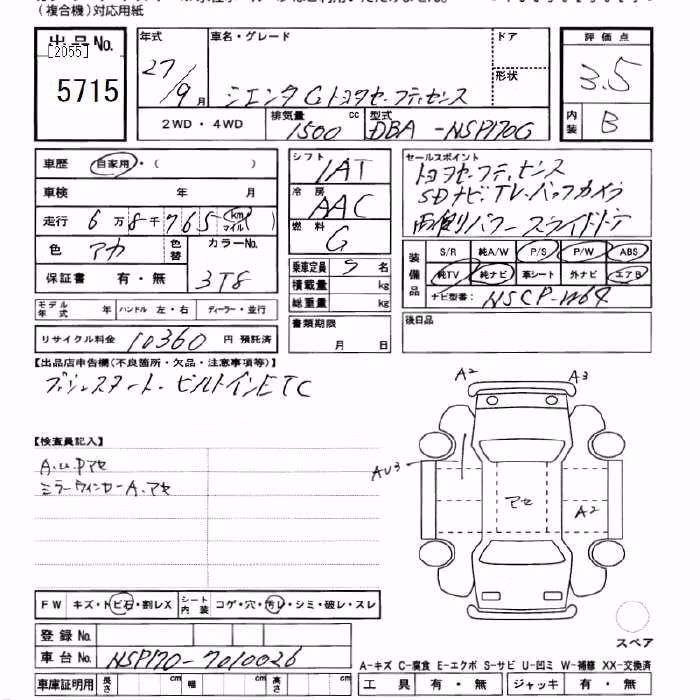 (複合機)対応用紙
出品No.
[2055]
5715
年式
27/9月
車名・グレード
シエンタGトヨタセーフティセンス
ドア
形状
評価点
3.5
内装
B
2WD・4WD
排気量
1500 cc
型式
DBA-NSP170G
車歴 自家用・( )
車検 年 月
走行 6万8千765 km マイル
色 アカ 色替
カラーNo.
3T8
保証書 有・無
モデル年式 年 ハンドル 左・右 ディーラー・並行
リサイクル料金 10360 円 預託済
シフト
IAT
冷房
AAC
燃料
G
乗車定員 5名
積載量 kg
総重量 kg
書類期限
月 日
セールスポイント
トヨタセーフティセンス
SDナビTV・バックカメラ
両側パワースライドドア
装備品
S/R 純A/W P/S P/W ABS
純TV 純ナビ 革シート 外ナビ エアB
ナビ型番: NSCP-W64
後日品
【出品店申告欄(不良箇所・欠品・注意事項等)】
プッシュスタート・ビルトインETC
【検査員記入】
A.U.Pアセ
ミラーウィンカーA.アセ
A2
A3
AU3
アセ
A2
スペア
FW キズ・トビ石・割レX
シート内装 コゲ・穴・汚レ・シミ・破レ・スレ
登録No.
車台No. NSP170-7010026
車庫証明用 長さ cm 幅 cm 高さ cm
A-キズ C-腐食 E-エクボ S-サビ U-凹ミ W-補修 XX-交換済
工具 有・無 ジャッキ 有・無